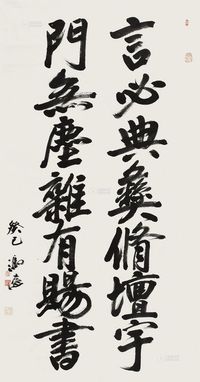 言必典彝脩壇宇
門無塵雜有賜書
癸巳